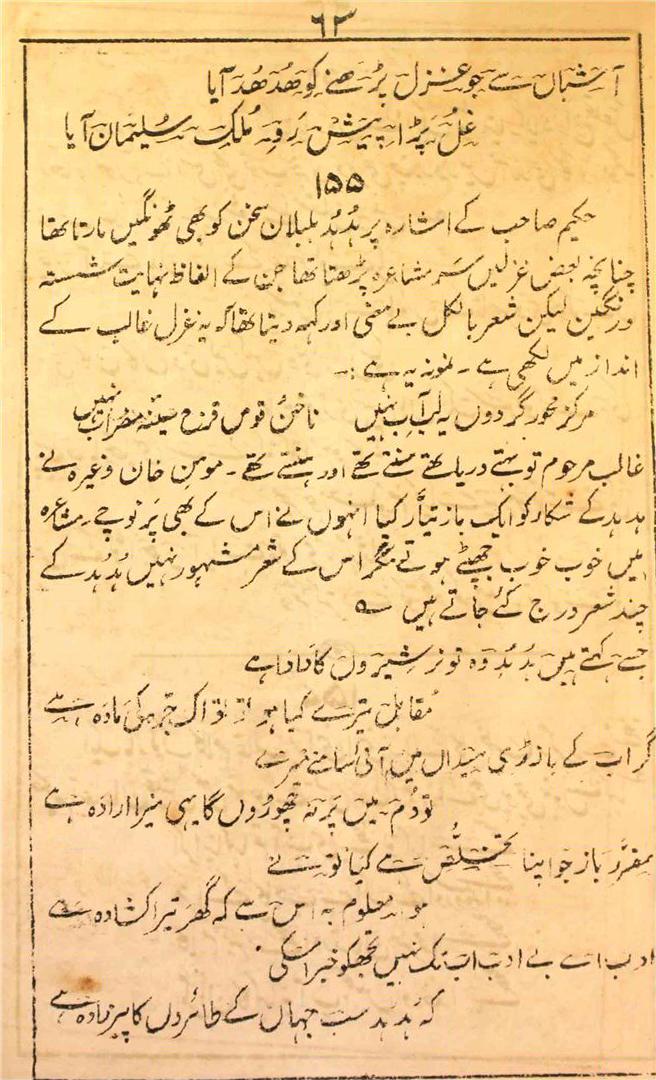 ٦٣
آشیاں سے جو غزل پڑھنے کو ھُدھُد آیا
غل پڑا پیش رَوِ مُلکِ سلیمان آیا
۱۵۵
حکیم صاحب کے اشارہ پر ہُدہُد بلبلان سخن کو بھی ٹھونگیں مارتا تھا
چنانچہ بعض غزلیں سر مشاعرہ پڑھتا تھا جن کے الفاظ نہایت شستہ
ورنگین لیکن شعر بالکل بے معنی اور کہہ دیتا تھا کہ یہ غزل غالب کے
انداز میں لکھی ہے ۔ نمونہ یہ ہے :۔
مرکز محور گردوں بہ لب آب نہیں ناخن قوس قزح سینۂ مضراب نہیں
غالب مرحوم تو بہتے دریا تھے سنتے تھے اور ہنستے تھے ۔ مومن خان وغیرہ نے
ہدہد کے شکار کو ایک باز تیّار کیا انہوں نے اس کے بھی پر نوچے ۔ مشاعرہ
میں خوب خوب جھپٹے ہوتے مگر اس کے شعر مشہور نہیں ہُدہُد کے
چند شعر درج کئے جاتے ہیں ؎
جسے کہتے ہیں ہُدہُد وہ تو نر شیروں کا دادا ہے
مُقابل تیرے کیا ہو تو تو اک جرہ کی مادہ ہے
گر اب کے بازڑی میداں میں آئی سامنے میرے
تو دُم میں پَر نہ چھوڑوں گا یہی میرا ارادہ ہے
مقرّر باز جو اپنا تخلّص ہے کیا تو نے
ہوا معلوم یہ اس سے کہ گھر تیرا کشادہ ہے
ادب اے بے ادب اب تک نہیں تجھکو خبر اسکی
کہ ہُدہُد سب جہاں کے طائروں کا پیرزادہ ہے